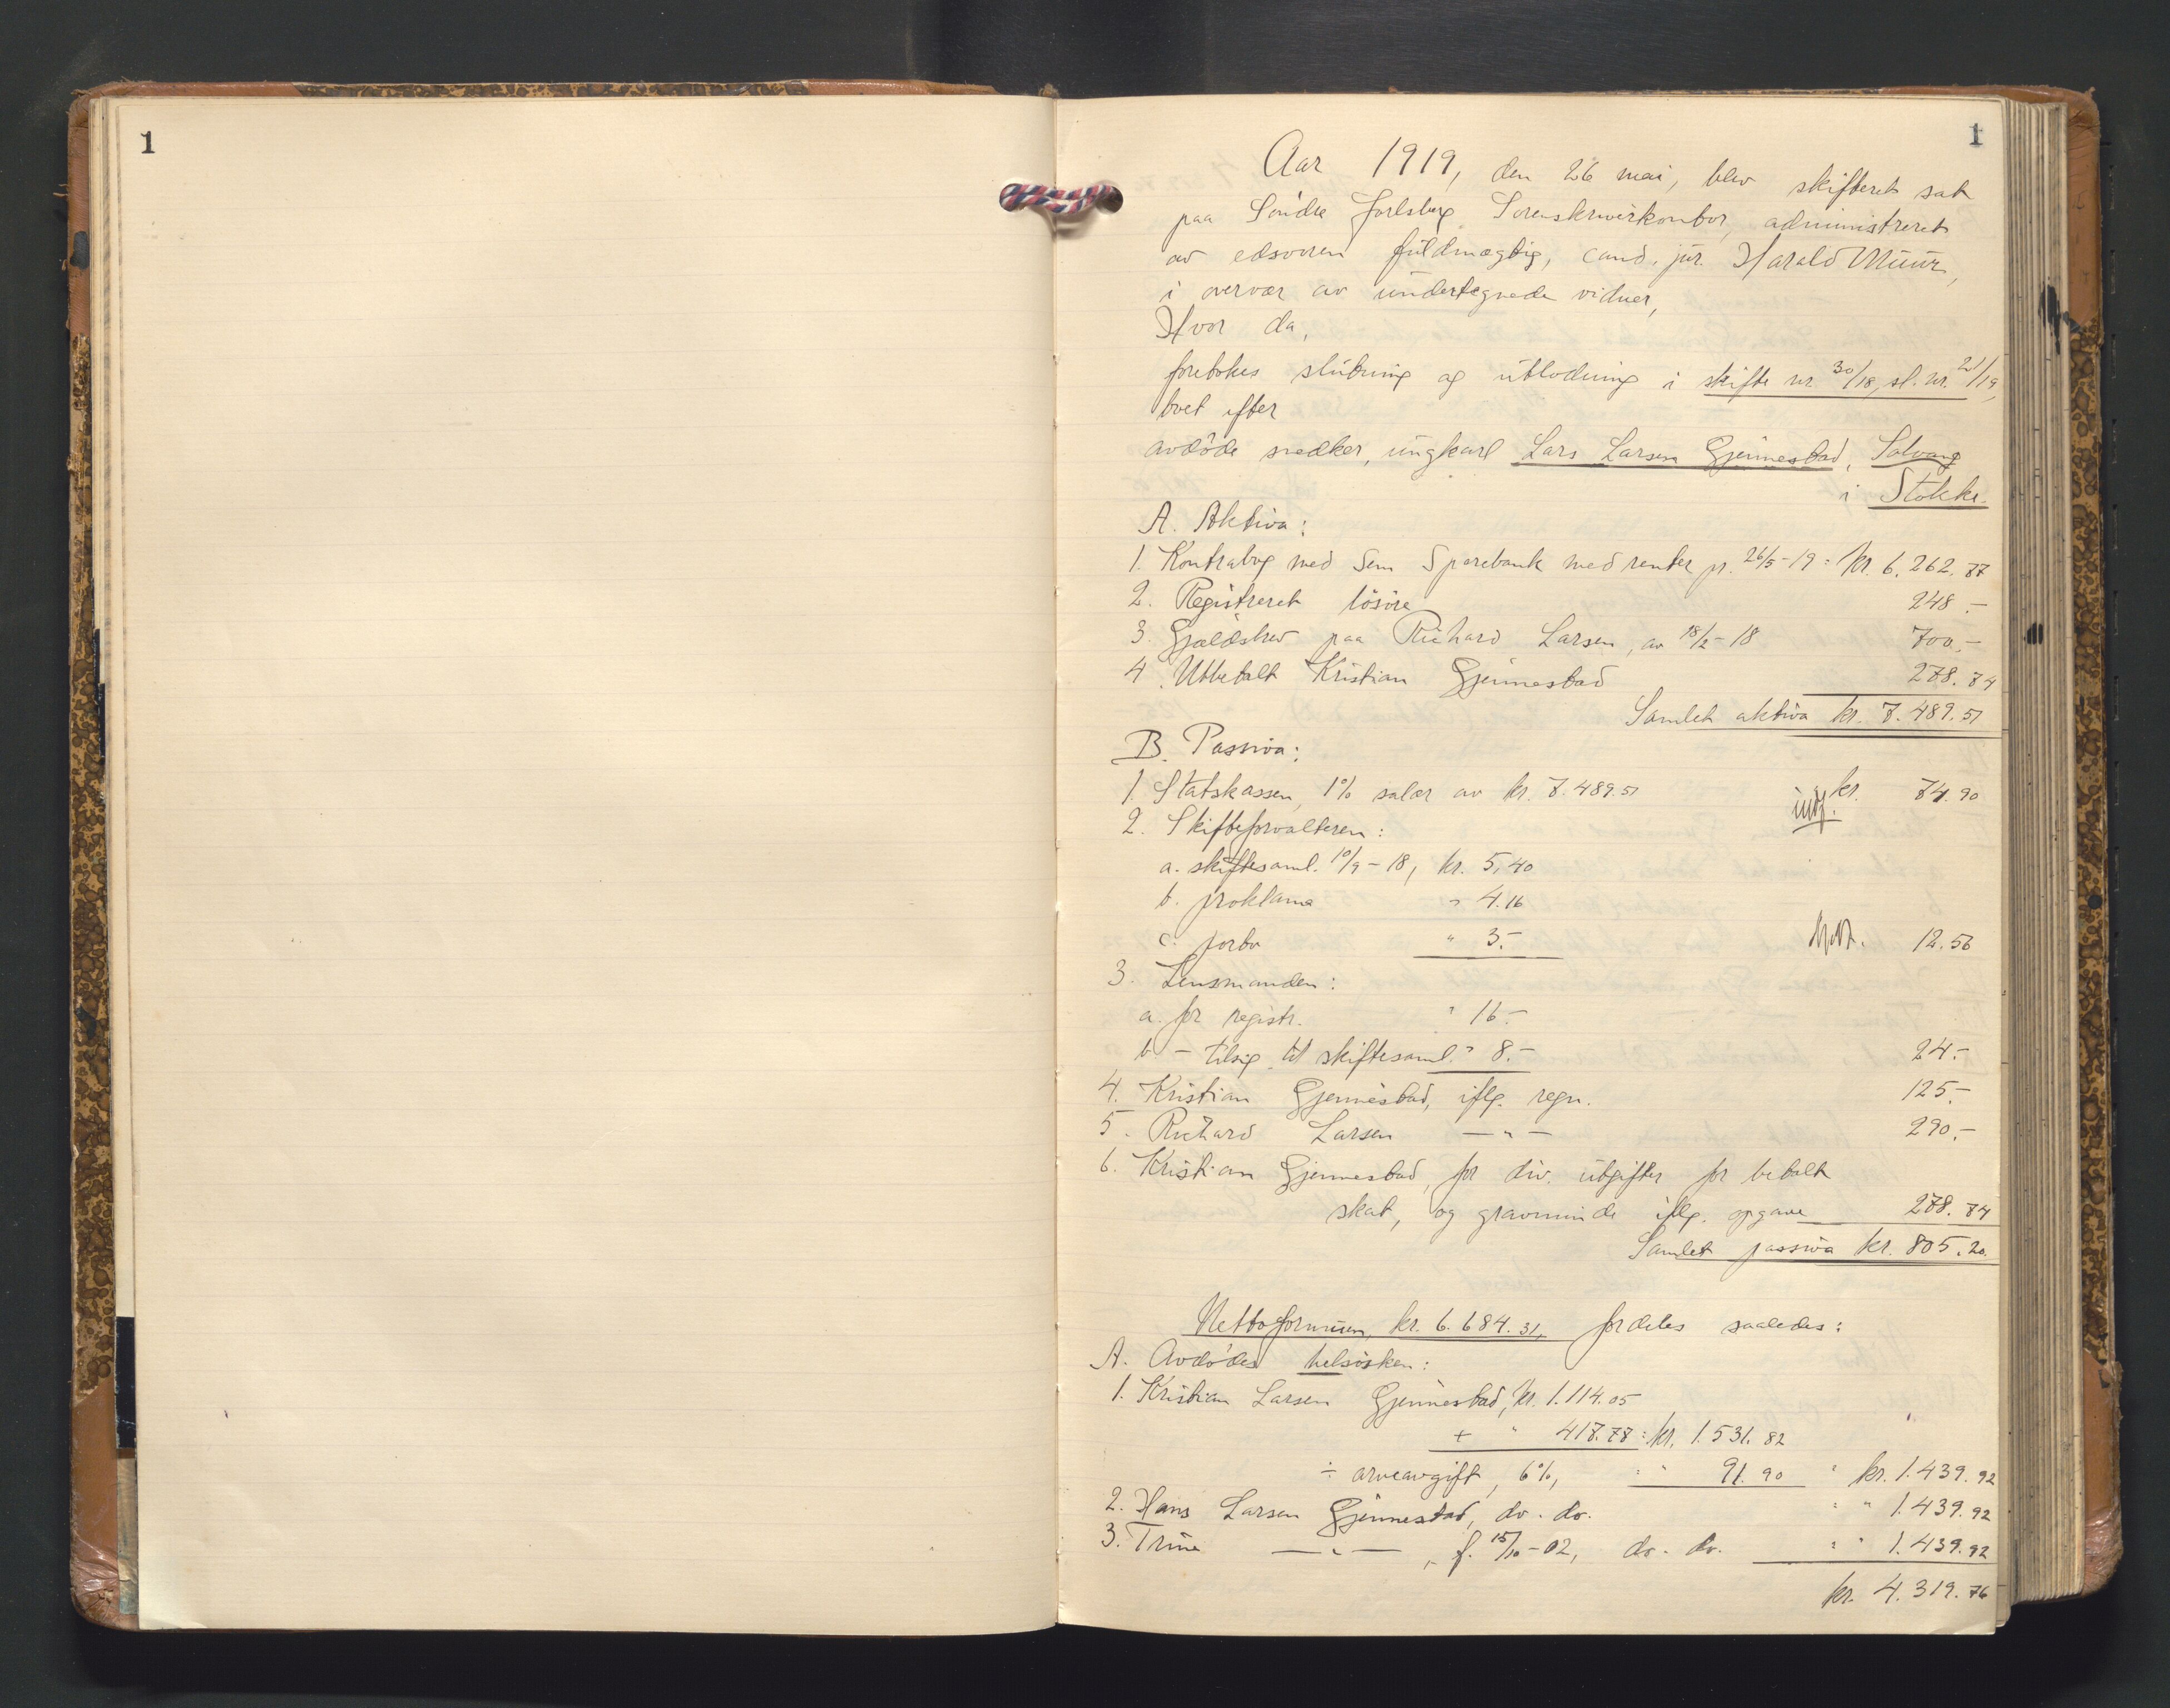 1
1
Aar 1919, den 26 mai, blev skifteret sat
paa Søndre Jarlsberg Sorenskriverkontor, administreret
av edsvoren fuldmægtig, cand. jur. Harald Muur,
i overvær av undertegnede vidner,
Hvor da,
foretokes slutning og utlodning i skifte nr 30/18, sl. nr. 21/19,
boet efter
avdøde snedker, ungkarl Lars Larsen Gjennestad, Solvang
i Stokke.
A. Aktiva:
1. Kontrabog med Sem Sparebank med renter pr. 26/5-19: kr. 6.262.77
2. Registreret løsøre 248.-
3. Gjældsbrev paa Richard Larsen, av 18/2-18 700.-
4. Utbetalt Kristian Gjennestad 278.74
Samlet aktiva kr. 7.489.51
B. Passiva:
1. Statskassen, 1% salær av kr. 7.489.51 kr. 74.90
indf.
2. Skifteforvalteren:
a. skiftesaml. 10/9-18, kr. 5.40
b. proklama " 4.16
c. porto " 3.- 12.56
3. Lensmanden:
a. for registr. " 16.-
b. - tilsig. til skiftesaml. " 8.- 24.-
4. Kristian Gjennestad, iflg. regn. 125.-
5. Richard Larsen —"— 290.-
6. Kristian Gjennestad, for div. utgifter for betalt
skat, og gravminde iflg. opgave 278.74
Samlet passiva kr. 805.20.
Nettoformuen, kr. 6.684.31, fordeles saaledes:
A. Avdødes helsøsken:
1. Kristian Larsen Gjennestad, kr. 1.114.05
+ " 417.78 : kr. 1.531.82
÷ arveavgift, 6%, : " 91.90 " kr. 1.439.92
2. Hans Larsen Gjennestad, do. do. : " 1.439.92
3. Trine —"—, f. 15/10-02, do. do. : " 1.439.92
kr. 4.319.76